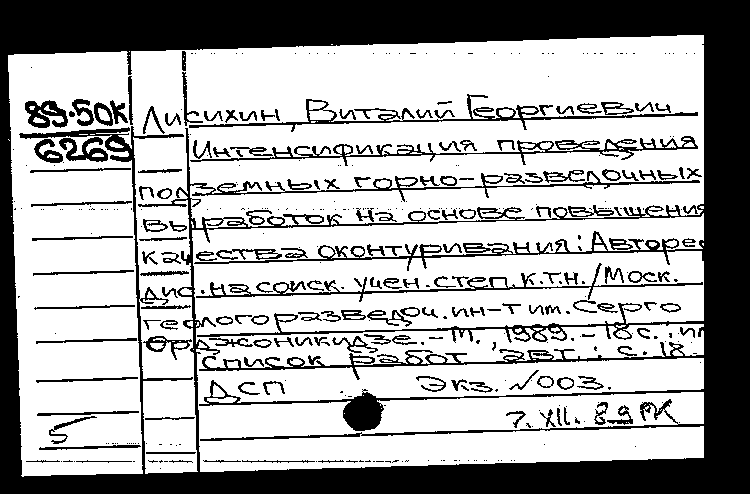 89-50К Лисихин, Виталий Георгиевич
6269 Интенсификация проведения
подземных горно-разведочных
выработок на основе повышения
качества оконтуривания: Авторе
дис. на соиск. учен. степ. к.т.н. / Моск.
геологоразведоч. ин-т им. Серго
Орджоникидзе. - М., 1989. - 18 с.: ил
Список работ авт.: с. 18
ДСП Экз. №003.
7. XII. 89
5